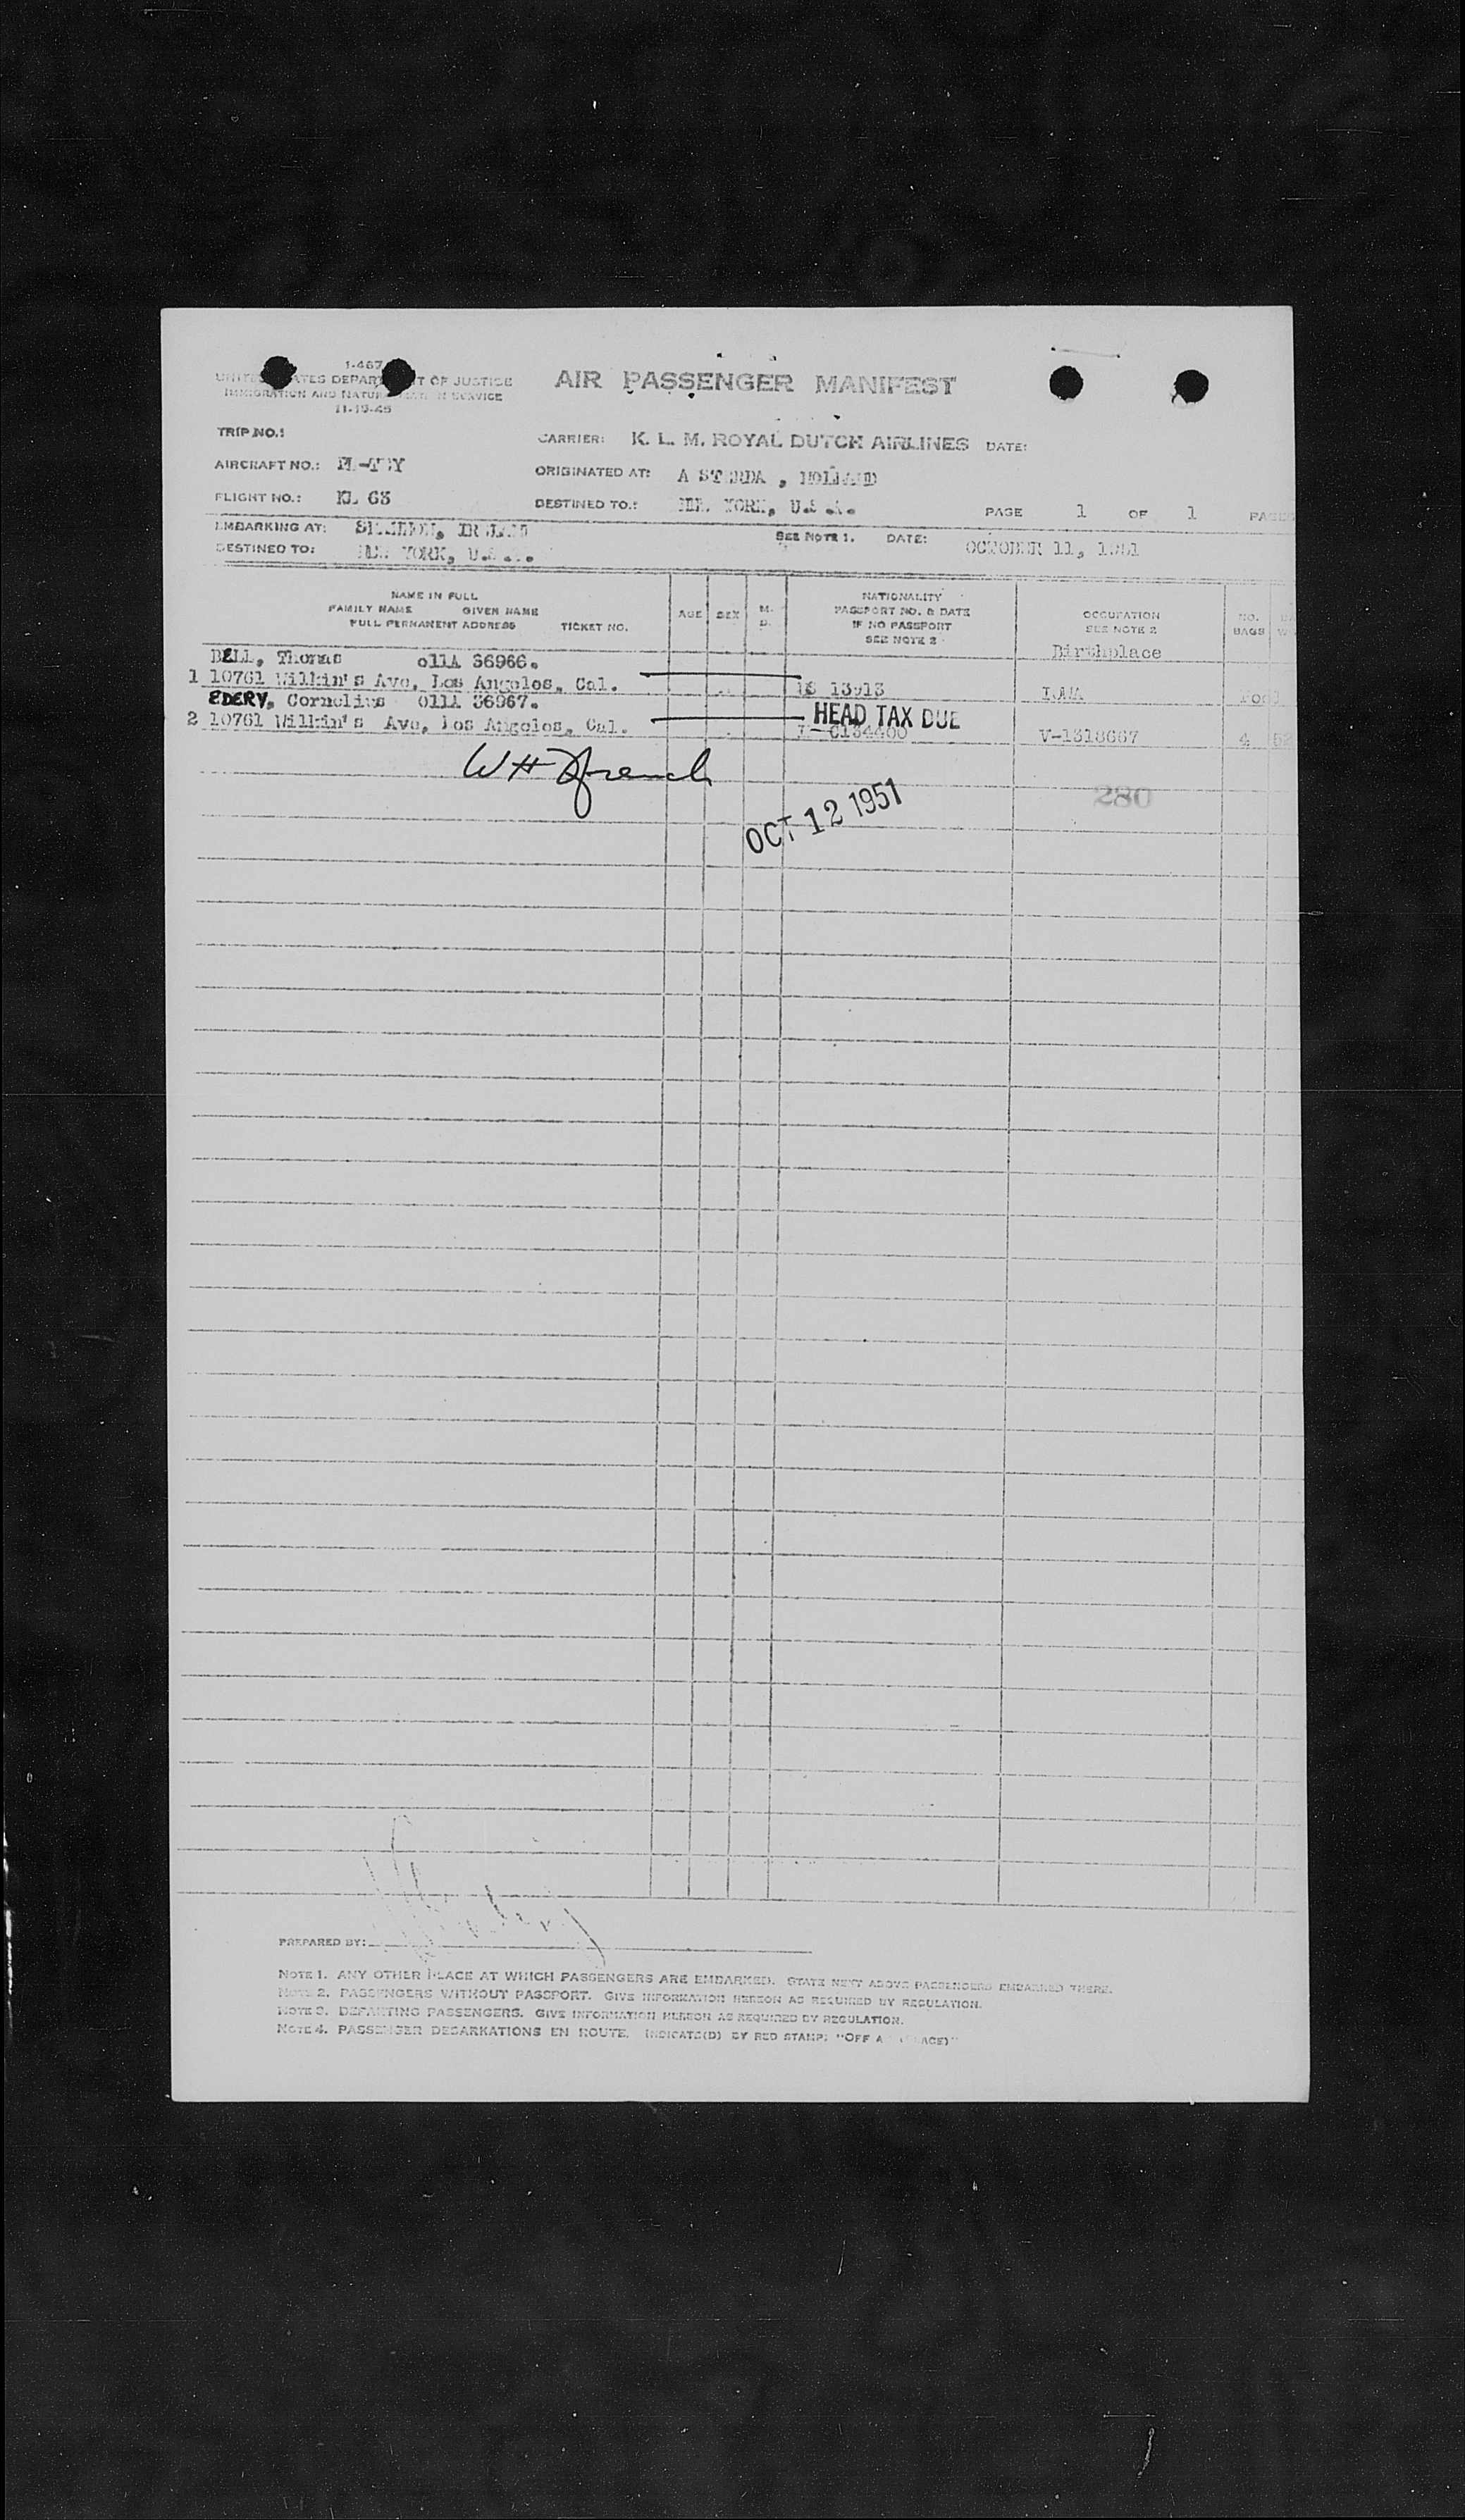 1-467
UNITED STATES DEPARTMENT OF JUSTICE
IMMIGRATION AND NATURALIZATION SERVICE
11-19-45
AIR PASSENGER MANIFEST
TRIP NO.:
CARRIER: K. L. M. ROYAL DUTCH AIRLINES DATE:
AIRCRAFT NO.:
ORIGINATED AT: A ST RDA , HOLLAND
FLIGHT NO.: KL 63
DESTINED TO.: NEW YORK, U.S.A.
PAGE 1 OF 1 PAGES
EMBARKING AT: SHANNON, IRELAND
SEE NOTE 1. DATE: OCTOBER 11, 1951
DESTINED TO: NEW YORK, U.S.A.
NAME IN FULL
FAMILY NAME GIVEN NAME
FULL PERMANENT ADDRESS TICKET NO.
AGE SEX M. D.
NATIONALITY
PASSPORT NO. & DATE
IF NO PASSPORT
SEE NOTE 2
OCCUPATION
SEE NOTE 2
Birthplace
NO.
BAGS
BELL, Thomas 011A 36966.
1 10761 Wilkin's Ave, Los Angelos, Cal. US 13913 IOWA Pool
EDERY, Cornelius 011A 36967.
HEAD TAX DUE
2 10761 Wilkin's Ave, Los Angelos, Cal. C134400 V-1318667 4 52
WH French
280
OCT 12 1951
PREPARED BY:
NOTE 1. ANY OTHER PLACE AT WHICH PASSENGERS ARE EMBARKED. STATE NEXT ABOVE PASSENGERS EMBARKED THERE.
NOTE 2. PASSENGERS WITHOUT PASSPORT. GIVE INFORMATION HEREON AS REQUIRED BY REGULATION.
NOTE 3. DEPARTING PASSENGERS. GIVE INFORMATION HEREON AS REQUIRED BY REGULATION.
NOTE 4. PASSENGER DEBARKATIONS EN ROUTE. INDICATE(D) BY RED STAMP: "OFF A (PLACE)"